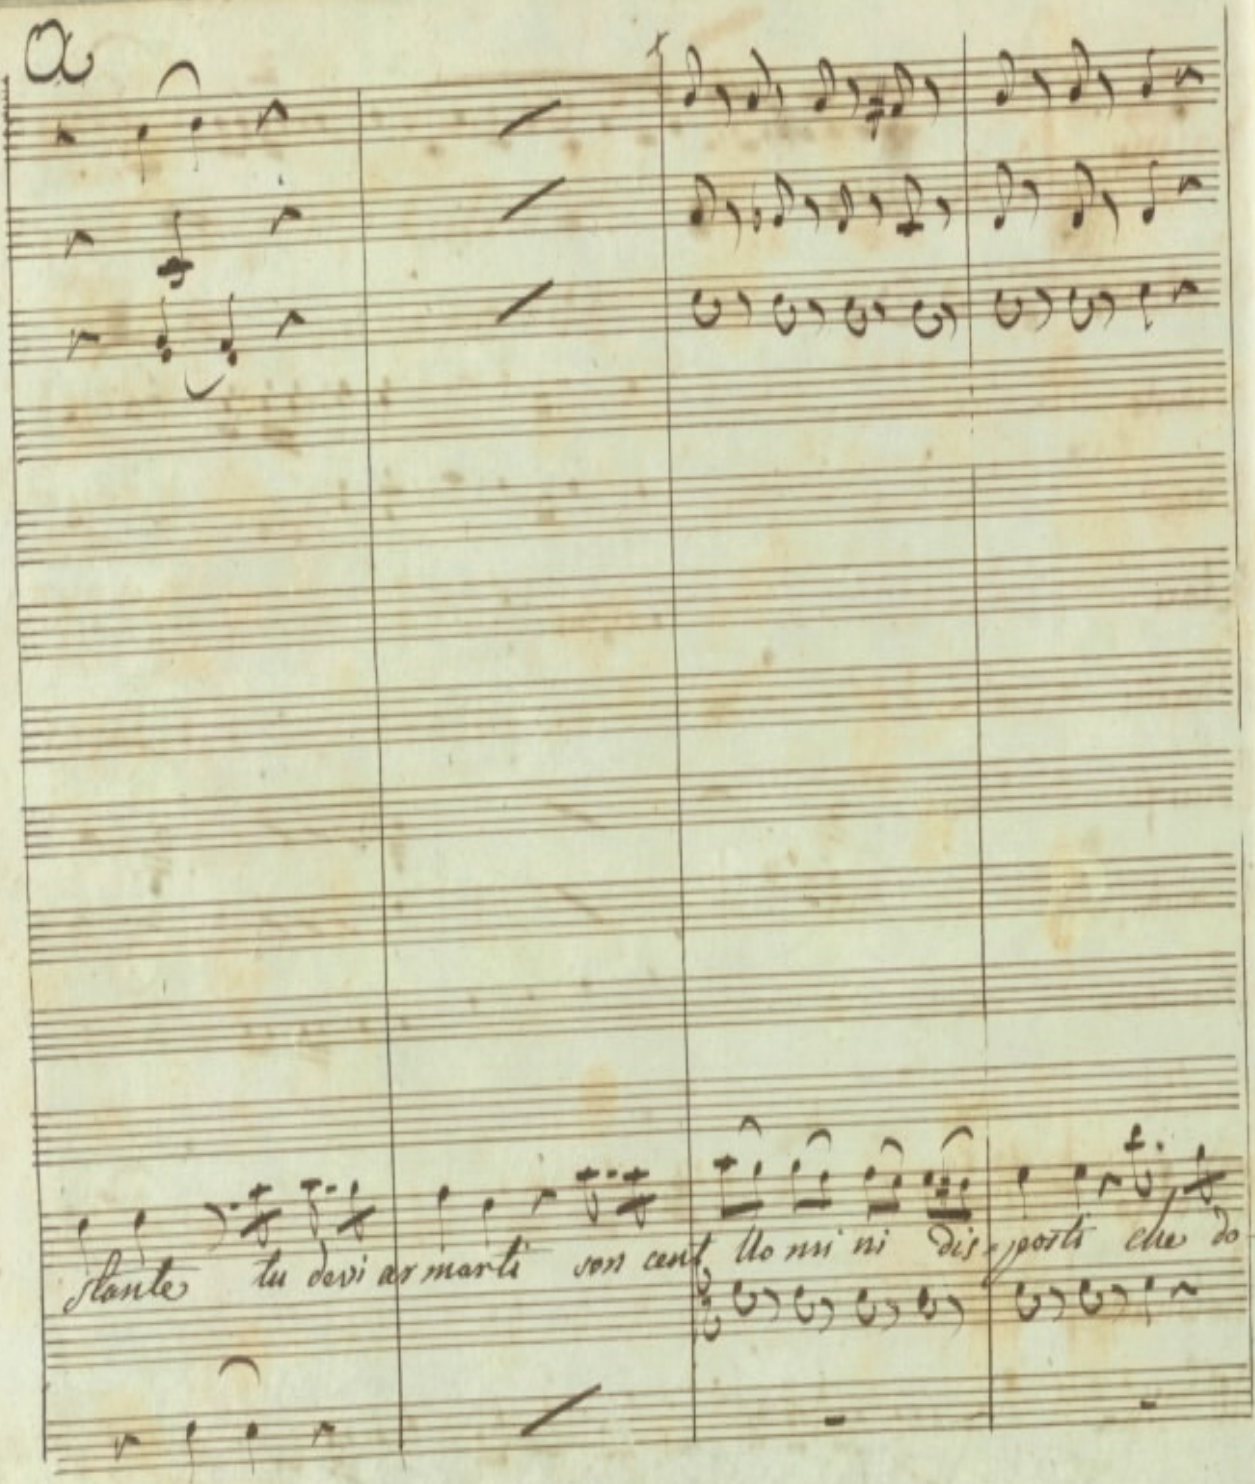 a
stante tu devi armarti son cent Uo mi ni dis posti che do